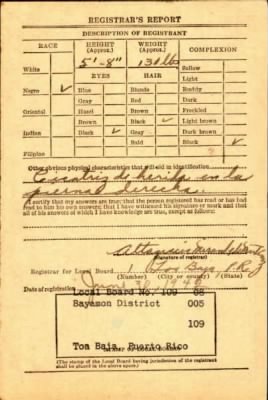 REGISTRAR'S REPORT
DESCRIPTION OF REGISTRANT
RACE
HEIGHT (Approx.)
WEIGHT (Approx.)
COMPLEXION
5'-8"
130 lbs
Sallow
White
EYES
HAIR
Light
Negro ✓
Blue
Blonde
Ruddy
Gray
Red
Dark
Oriental
Hazel
Brown
Freckled
Brown
Black ✓
Light brown
Indian
Black ✓
Gray
Dark brown
Bald
Black ✓
Filipino
Other obvious physical characteristics that will aid in identification
Cicatriz de herida en la
pierna derecha.
I certify that my answers are true; that the person registered has read or has had
read to him his own answers; that I have witnessed his signature or mark and that
all of his answers of which I have knowledge are true, except as follows:
(Signature of registrar)
Registrar for Local Board 1 Toa Baja P.R.
(Number) (City or county) (State)
Date of registration June
Local Board No. 109 68
Bayamon District 005
109
Toa Baja, Puerto Rico
(The stamp of the Local Board having jurisdiction of the registrant
shall be placed in the above space.)